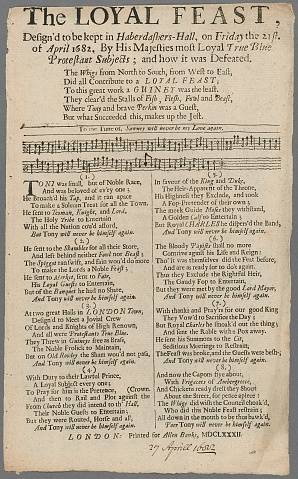 The LOYAL FEAST,
Design'd to be kept in Haberdashers-Hall, on Friday the 21st.
of April 1682. By His Majesties most Loyal True Blue
Protestant Subjects; and how it was Defeated.
The Whigs from North to South, from West to East,
Did all Contribute to a LOYAL FEAST;
To this great work a GUINEY was the least.
They clear'd the Stalls of Fish, Flesh, Fowl and Beast,
Where Tony and brave Perkin was a Guest,
But what Succeeded this, makes up the Jest.
To the Tune of, Sawney will never be my Love again.
(1.)
TONI was small, but of Noble Race,
And was beloved of ev'ry one;
He Broach'd his Tap, and it ran apace
To make a Solemn Treat for all the Town.
He sent to Yeoman, Knight, and Lord,
The Holy Tribe to Entertain
With all the Nation cou'd afford,
But Tony will never be himself again.
(2.)
He sent to the Shambles for all their Store,
And left behind neither Fowl nor Beast;
The Spigot ran fast, and fain wou'd do more
To make the Lords a Noble Feast;
He sent to for Fare,
His Loyal Guests to Entertain,
But of the Rumpant he had no Share,
And Tony will never be himself again.
(3.)
At two great Halls in LONDON Town,
Design'd to Meet a Jovial Crew
Of Lords and Knights of High Renown,
And all were Protestants True Blue.
They Threw in Guineys free as fresh,
The Noble Frolick to Maintain,
But on Old Rowley the Sham wou'd not pass,
And Tony will never be himself again.
(4.)
With Duty to their Lawful Prince,
A Loyal Subject every one;
To Pray for him is the Pretence (Crown.
And then to Rail and Plot against the
From Church they did intend to th' Hall,
Their Noble Guests to Entertain;
But they were Routed, Horse and all,
And Tony will never be himself again.
(5.)
In favour of the King and Duke,
The Heir-Apparent of the Throne,
His Highness they Exclude, and took
A Fop-Pretender of their own;
The meek Guide Moses they withstand,
A Golden Calf to Entertain;
But Royal CHARLES he dispers'd the Band,
And Tony will never be himself again.
(6.)
The Bloody Papists shall no more
Contrive against his Life and Reign;
That it was themselves did the Feat before,
And are as ready for to do't again.
Thus they Exclude the Rightful Heir,
The Gaudy Fop to Entertain,
But they were met by the good Lord Mayor,
And Tony will never be himself again.
(7.)
With thanks and Pray'rs for our good King
They Vow'd to Sacrifice the Day;
But Royal Charles he smoak'd out the thing;
And sent the Rabble with a Pox away.
He sent his Summons to the Cit,
Seditious Meetings to Restrain,
The Feast was broke, and the Guests were bit,
And Tony will never be himself again.
(8.)
And now the Capons fly about,
With Frigacies of Ambergreece,
And Chickens ready drest they Shout
About the Street, for pence apiece:
The Whigs did wish the Council choak'd,
Who did this Noble Feast restrain;
All down in the mouth to be thus bauk'd,
And Tony will never be himself again.
LONDON: Printed for Allen Banks, MDCLXXXII.
27 April 1682